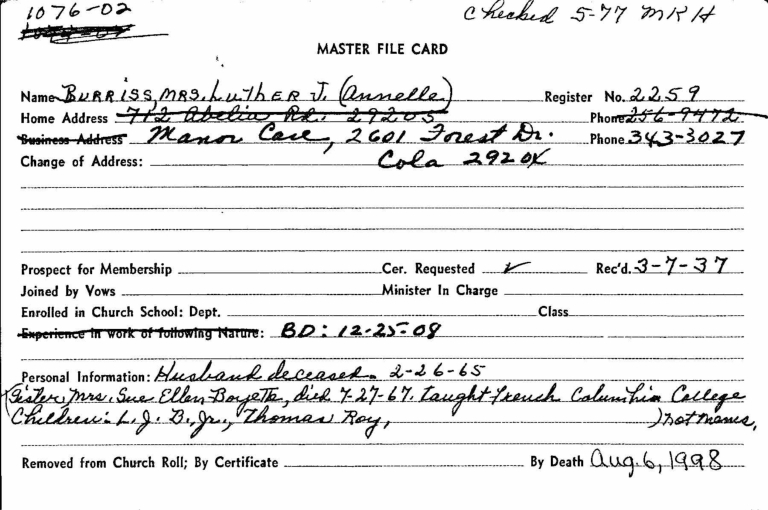 1076-02
Checked 5-77 MRH
MASTER FILE CARD
Name BURRISS, MRS. LUTHER J. (Annelle) Register No. 2259
Home Address 712 Abelia Rd. 29205 Phone 256-9472
Business Address Manor Care, 2601 Forest Dr. Phone 343-3027
Change of Address: Cola 29204
Prospect for Membership Cer. Requested ✓ Rec'd. 3-7-37
Joined by Vows Minister In Charge
Enrolled in Church School: Dept. Class
Experience in work of following Nature: BD: 12-25-08
Personal Information: Husband deceased. 2-26-65
(Sister, Mrs. Sue Ellen Boyette, died 7-27-67. taught French Columbia College
Children: L. J. B., Jr., Thomas Roy, )
Removed from Church Roll; By Certificate By Death Aug. 6, 1998